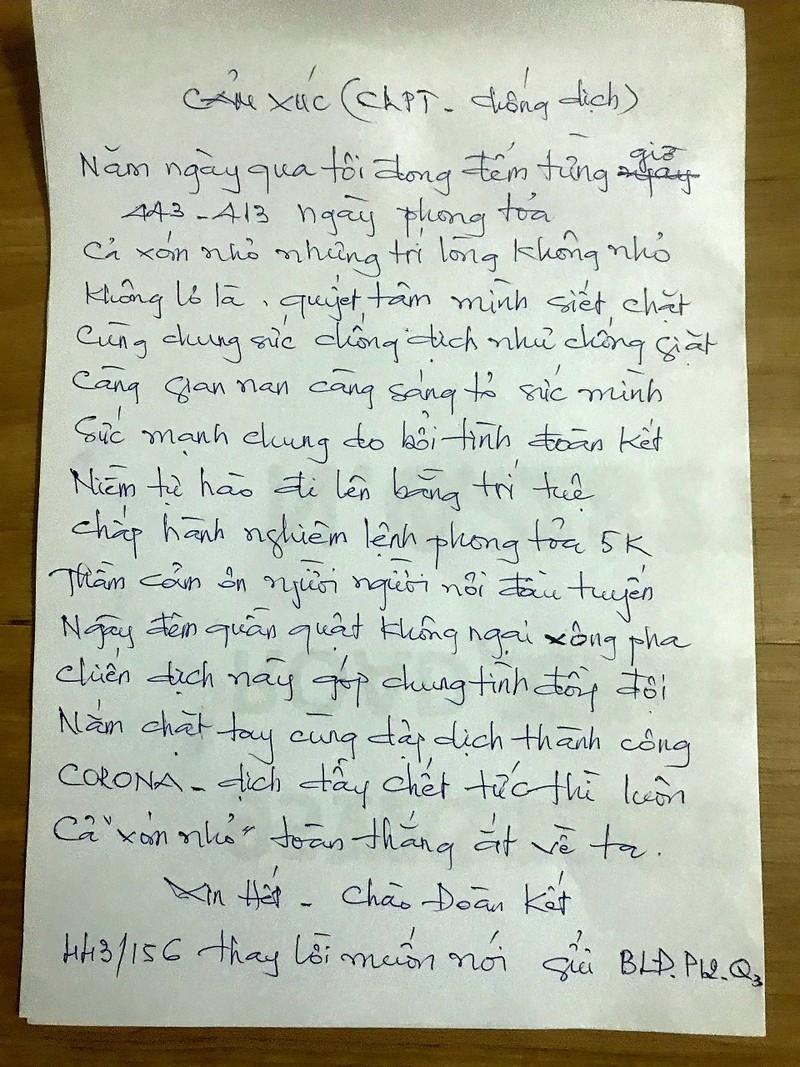 CẢM XÚC (CLPT - chống dịch)
Năm ngày qua tôi đong đếm từng giờ
443 - 413 ngày phong tỏa
Cả xóm nhỏ nhưng trí lòng không nhỏ
Không lơ là, quyết tâm mình siết chặt
Cùng chung sức chống dịch như chống giặt
Càng gian nan càng sáng tỏ sức mình
Sức mạnh chung do bởi tình đoàn kết
Niềm tự hào đi lên bằng trí tuệ
Chấp hành nghiêm lệnh phong tỏa 5K
Thầm cảm ơn người người nơi đầu tuyến
Ngày đêm quần quật không ngại xông pha
Chiến dịch này góp chung tình đồng đội
Nắm chặt tay cùng dập dịch thành công
CORONA - dịch đầy chết tức thì luôn
Cả "xóm nhỏ" toàn thắng ắt về ta.
Xin Hết - Chào Đoàn Kết
443/156 thay lời muốn nói gửi BLĐ. P12. Q3